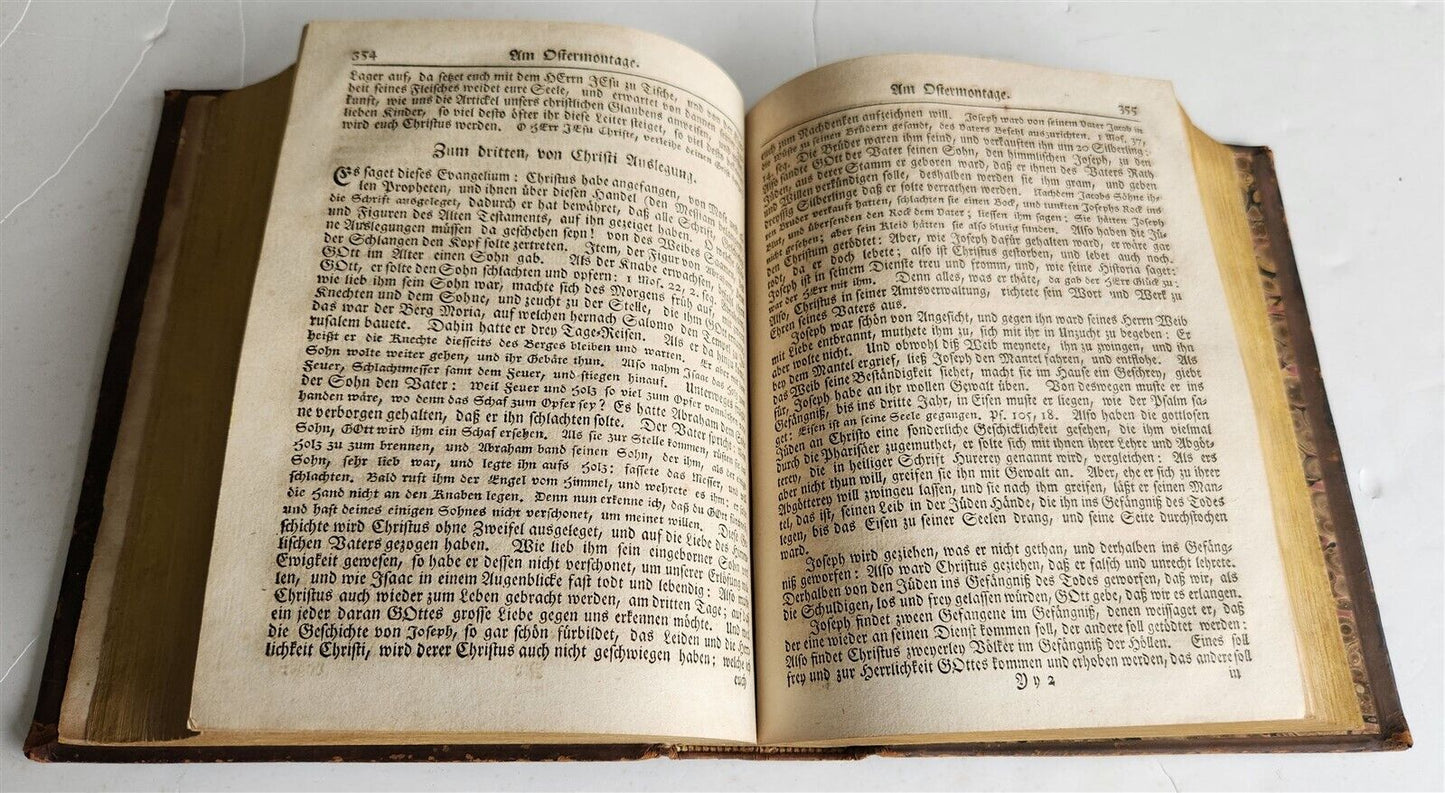 354 Am Ostermontage.
Lager auf, da setzet euch mit dem HErrn JEsu zu Tische, und von
heit seines Fleisches weidet eure Seele, und erwartet von dannen
kunft, wie uns die Artickel unsers christlichen Glaubens anweisen,
lieben Kinder, so viel desto öfter ihr diese Leiter steiget, so viel desto
wird euch Christus werden. O HErr JEsu Christe, verleihe deinen Geist
Zum dritten, von Christi Auslegung.
Es saget dieses Evangelium: Christus habe angefangen, von Mose
len Propheten, und ihnen über diesen Handel (den Messiam
die Schrift ausgeleget, dadurch er hat bewähret, daß alle Schrift,
und Figuren des Alten Testaments, auf ihn gezeiget haben. O,
ne Auslegungen müssen da geschehen seyn! von des Weibes Saamen
der Schlangen den Kopf solte zertreten. Item, der Figur von Abraham,
GOtt im Alter einen Sohn gab. Als der Knabe erwachsen,
GOtt, er solte den Sohn schlachten und opfern: 1 Mos. 22, 2. seq.
wie lieb ihm sein Sohn war, machte sich des Morgens früh auf,
Knechten und dem Sohne, und zeucht zu der Stelle, die ihm GOtt
das war der Berg Moria, auf welchen hernach Salomo den Tempel
rusalem bauete. Dahin hatte er drey Tage-Reisen. Als er da hin
heißt er die Knechte diesseits des Berges bleiben und warten. Er aber
Sohn wolte weiter gehen, und ihr Gebäte thun. Also nahm Isaac das
Feuer, Schlachtmesser samt dem Feuer, und stiegen hinauf. Unterwegs
der Sohn den Vater: weil Feuer und Holz so viel zum Opfer vonnöthen
handen wäre, wo denn das Schaf zum Opfer sey? Es hatte Abraham dem
ne verborgen gehalten, daß er ihn schlachten solte. Der Vater spricht:
Sohn, GOtt wird ihm ein Schaf ersehen. Als sie zur Stelle kommen, rüsten sie
Holz zu zum brennen, und Abraham band seinen Sohn, der ihm, als der
Sohn, sehr lieb war, und legte ihn aufs Holz: fassete das Messer, und
schlachten. Bald ruft ihm der Engel vom Himmel, und wehrete es ihm:
die Hand nicht an den Knaben legen. Denn nun erkenne ich, daß du GOtt
und hast deines einigen Sohnes nicht verschonet, um meiner willen. Diese
schichte wird Christus ohne Zweifel ausgeleget, und auf die Liebe des
lischen Vaters gezogen haben. Wie lieb ihm sein eingeborner Sohn
Ewigkeit gewesen, so habe er dessen nicht verschonet, um unserer Erlösung
len, und wie Isaac in einem Augenblicke fast todt und lebendig: Also
Christus auch wieder zum Leben gebracht werden, am dritten Tage;
ein jeder daran GOttes grosse Liebe gegen uns erkennen möchte. Und
die Geschichte von Joseph, so gar schön fürbildet, das Leiden und die Herr
lichkeit Christi, wird derer Christus auch nicht geschwiegen haben; welche ich
euch
Am Ostermontage. 355
euch zum Nachdenken aufzeichnen will. Joseph ward von seinem Vater Jacob in
die Wüste zu seinen Brüdern gesandt, des Vaters Befehl auszurichten. 1 Mos. 37,
14. seq. Die Brüder waren ihm feind, und verkauften ihn um 20 Silberling:
Also sandte GOtt der Vater seinen Sohn, den himmlischen Joseph, zu den
Jüden, aus derer Stamm er geboren ward, daß er ihnen des Vaters Rath
und Willen verkündigen solle, deshalben werden sie ihm gram, und geben
dreyssig Silberlinge daß er solte verrathen werden. Nachdem Jacobs Söhne ihren
Bruder verkauft hatten, schlachten sie einen Bock, und tunkten Josephs Rock ins
Blut, und übersenden den Rock dem Vater; liessen ihm sagen: Sie hätten Joseph
nicht gesehen; aber sein Kleid hätten sie also blutig funden. Also haben die Jü-
den Christum getödtet: Aber, wie Joseph dafür gehalten ward, er wäre gar
todt, da er doch lebete; also ist Christus gestorben, und lebet auch noch.
Joseph ist in seinem Dienste treu und fromm, und, wie seine Historia saget:
war der HErr mit ihm. Denn alles, was er thäte, da gab der HErr Glück zu:
Also, Christus in seiner Amtsverwaltung, richtete sein Wort und Werk zu
Ehren seines Vaters aus.
Joseph war schön von Angesicht, und gegen ihn ward seines Herrn Weib
mit Liebe entbrannt, muthete ihm zu, sich mit ihr in Unzucht zu begeben: Er
aber wolte nicht. Und obwohl diß Weib meynete, ihn zu zwingen, und ihn
bey dem Mantel ergrief, ließ Joseph den Mantel fahren, und entflohe. Als
das Weib seine Beständigkeit siehet, macht sie im Hause ein Geschrey, giebt
für, Joseph habe an ihr wollen Gewalt üben. Von deswegen muste er ins
Gefängniß, bis ins dritte Jahr, in Eisen muste er liegen, wie der Psalm sa-
get: Eisen ist an seine Seele gegangen. Ps. 105, 18. Also haben die gottlosen
Jüden an Christo eine sonderliche Geschicklichkeit gesehen, die ihm vielmal
durch die Pharisäer zugemuthet, er solte sich mit ihnen ihrer Lehre und Abgöt-
terey, die in heiliger Schrift Hurerey genannt wird, vergleichen: Als ers
aber nicht thun will, greifen sie ihn mit Gewalt an. Aber, ehe er sich zu ihrer
Abgötterey will zwingen lassen, und sie nach ihm greifen, läßt er seinen Man-
tel, das ist, seinen Leib in der Jüden Hände, die ihn ins Gefängniß des Todes
legen, bis das Eisen zu seiner Seelen drang, und seine Seite durchstochen
ward.
Joseph wird geziehen, was er nicht gethan, und derhalben ins Gefäng-
niß geworfen: Also ward Christus geziehen, daß er falsch und unrecht lehrete.
Derhalben von den Jüden ins Gefängniß des Todes geworfen, daß wir, als
die Schuldigen, los und frey gelassen würden, GOtt gebe, daß wir es erlangen.
Joseph findet zween Gefangene im Gefängniß, denen weissaget er, daß
der eine wieder an seinen Dienst kommen soll, der andere soll getödtet werden:
Also findet Christus zweyerley Völker im Gefängniß der Höllen. Eines soll
frey und zur Herrlichkeit GOttes kommen und erhoben werden, das andere soll
Yy 2 in